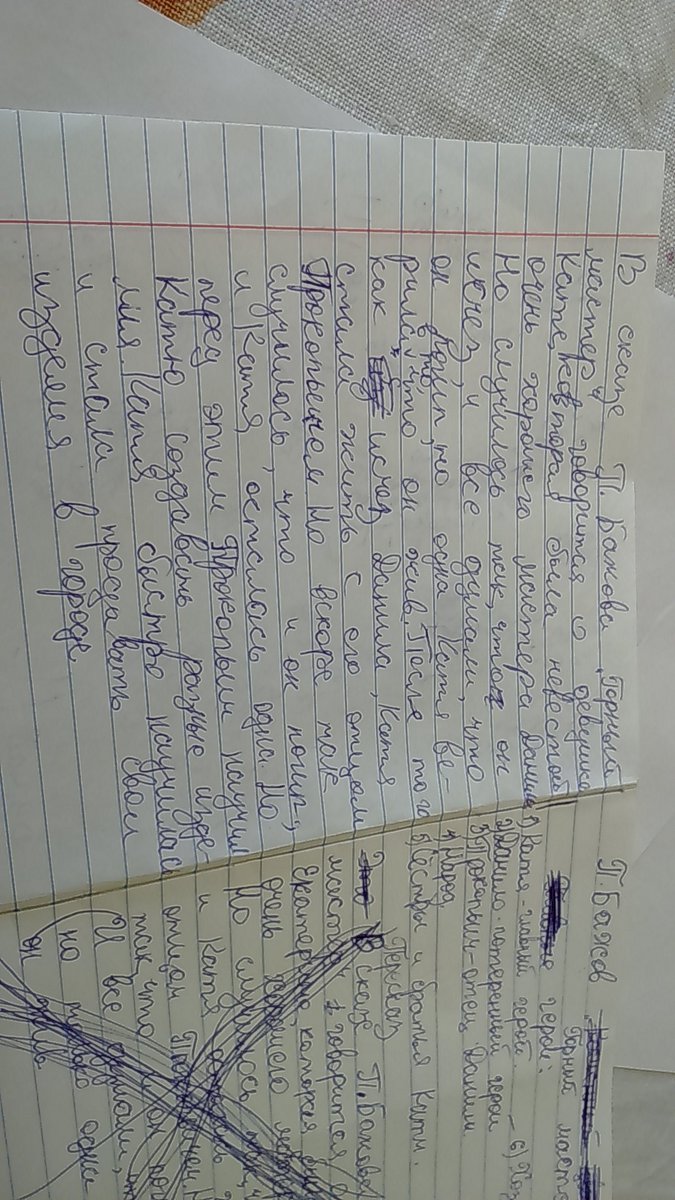 В сказе П. Бажова "Горный
мастер" говорится о девушке
Кате, которая была невестой
очень хорошего мастера Данилы
Но случилось так, что он
исчез, и все думали, что
он погиб, но одна Катя ве-
рила в то, что он жив. После того
как исчез Данила, Катя
стала жить с его отцом
Прокопьичем. Но вскоре так
случилось, что и он погиб,
и Катя осталась одна. Но
перед этим Прокопьич научил
Катю создавать разные изде-
лия. Катя быстро научилась
и стала продавать свои
изделия в городе
П. Бажов
Горный маст
герои:
1) Катя - главный герой.
2) Данило - потерянный герой
3) Прокопьич - отец Данилы
4) Народ
5) Сёстры и братья Кати.
6)
Пересказ
В сказе П. Бажова
мастер говорится о
Екатерине, которая бы
очень хорошего ма
Но случилось так, ч
и Катя осталась
отцом
так, что и он пог
И все думали,
но только одна
он жив